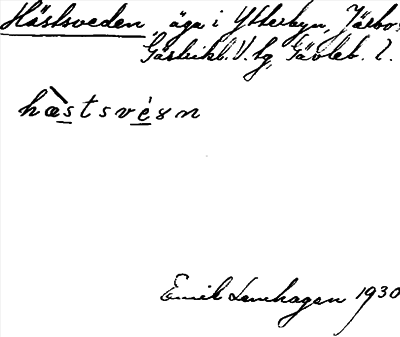 Hästsveden, äga i Ytterbyn, Järbo s
Gästrikl. V. tg, Gävleb. l.
hæ̀stsvé̱ɤn
Emil Lenhagen 1930